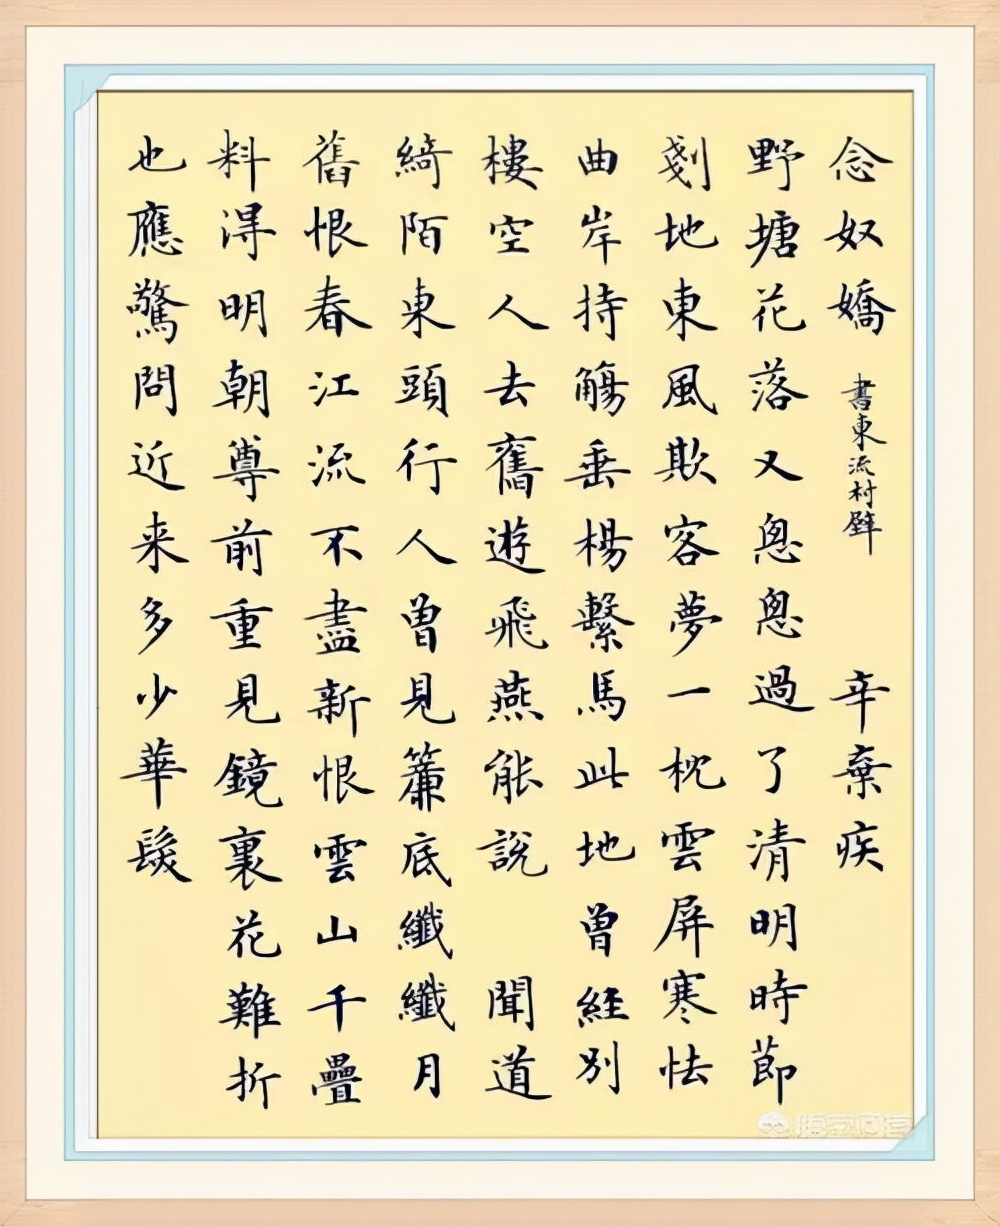 念奴嬌 書東流村壁 辛棄疾
野塘花落又匆匆過了清明時節
剗地東風欺客夢一枕雲屏寒怯
曲岸持觴垂楊繫馬此地曾經別
樓空人去舊遊飛燕能說 聞道
綺陌東頭行人曾見簾底纖纖月
舊恨春江流不盡新恨雲山千疊
料得明朝尊前重見鏡裏花難折
也應驚問近来多少華髮